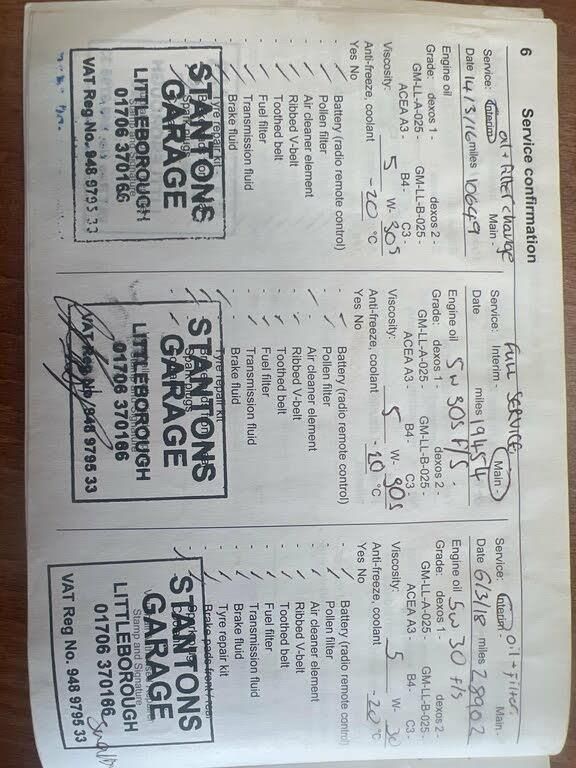 6 Service confirmation
oil + filter change
Service: Interim - Main -
Date 14/3/16 miles 10649
Engine oil
Grade: dexos 1 - dexos 2 -
GM-LL-A-025 - GM-LL-B-025 -
ACEA A3 - B4 - C3 -
Viscosity: 5 W- 30s
Anti-freeze, coolant -20 °C
Yes No
- Battery (radio remote control)
- Pollen filter
- Air cleaner element
- Ribbed V-belt
- Toothed belt
- Fuel filter
- Transmission fluid
- Brake fluid
- Tyre repair kit
STANTONS
GARAGE
LITTLEBOROUGH
01706 370166
VAT Reg No. 948 9795 33
Full Service
Service: Interim - Main -
Date miles 19454
Engine oil 5W 30s F/S.
Grade: dexos 1 - dexos 2 -
GM-LL-A-025 - GM-LL-B-025 -
ACEA A3 - B4 - C3 -
Viscosity: 5 W- 30s
Anti-freeze, coolant -20 °C
Yes No
- Battery (radio remote control)
- Pollen filter
- Air cleaner element
- Ribbed V-belt
- Toothed belt
- Fuel filter
- Transmission fluid
- Brake fluid
- Tyre repair kit
STANTONS
GARAGE
LITTLEBOROUGH
01706 370166
VAT Reg No. 948 9795 33
oil + filter.
Service: Interim - Main -
Date 6/3/18 miles 28902
Engine oil 5W 30 F/S
Grade: dexos 1 - dexos 2 -
GM-LL-A-025 - GM-LL-B-025 -
ACEA A3 - B4 - C3 -
Viscosity: 5 W- 30
Anti-freeze, coolant -20 °C
Yes No
- Battery (radio remote control)
- Pollen filter
- Air cleaner element
- Ribbed V-belt
- Toothed belt
- Fuel filter
- Transmission fluid
- Brake fluid
- Tyre repair kit
- Brake pads front / rear
STANTONS
GARAGE
Stamp and Signature
LITTLEBOROUGH
01706 370166
VAT Reg No. 948 9795 33